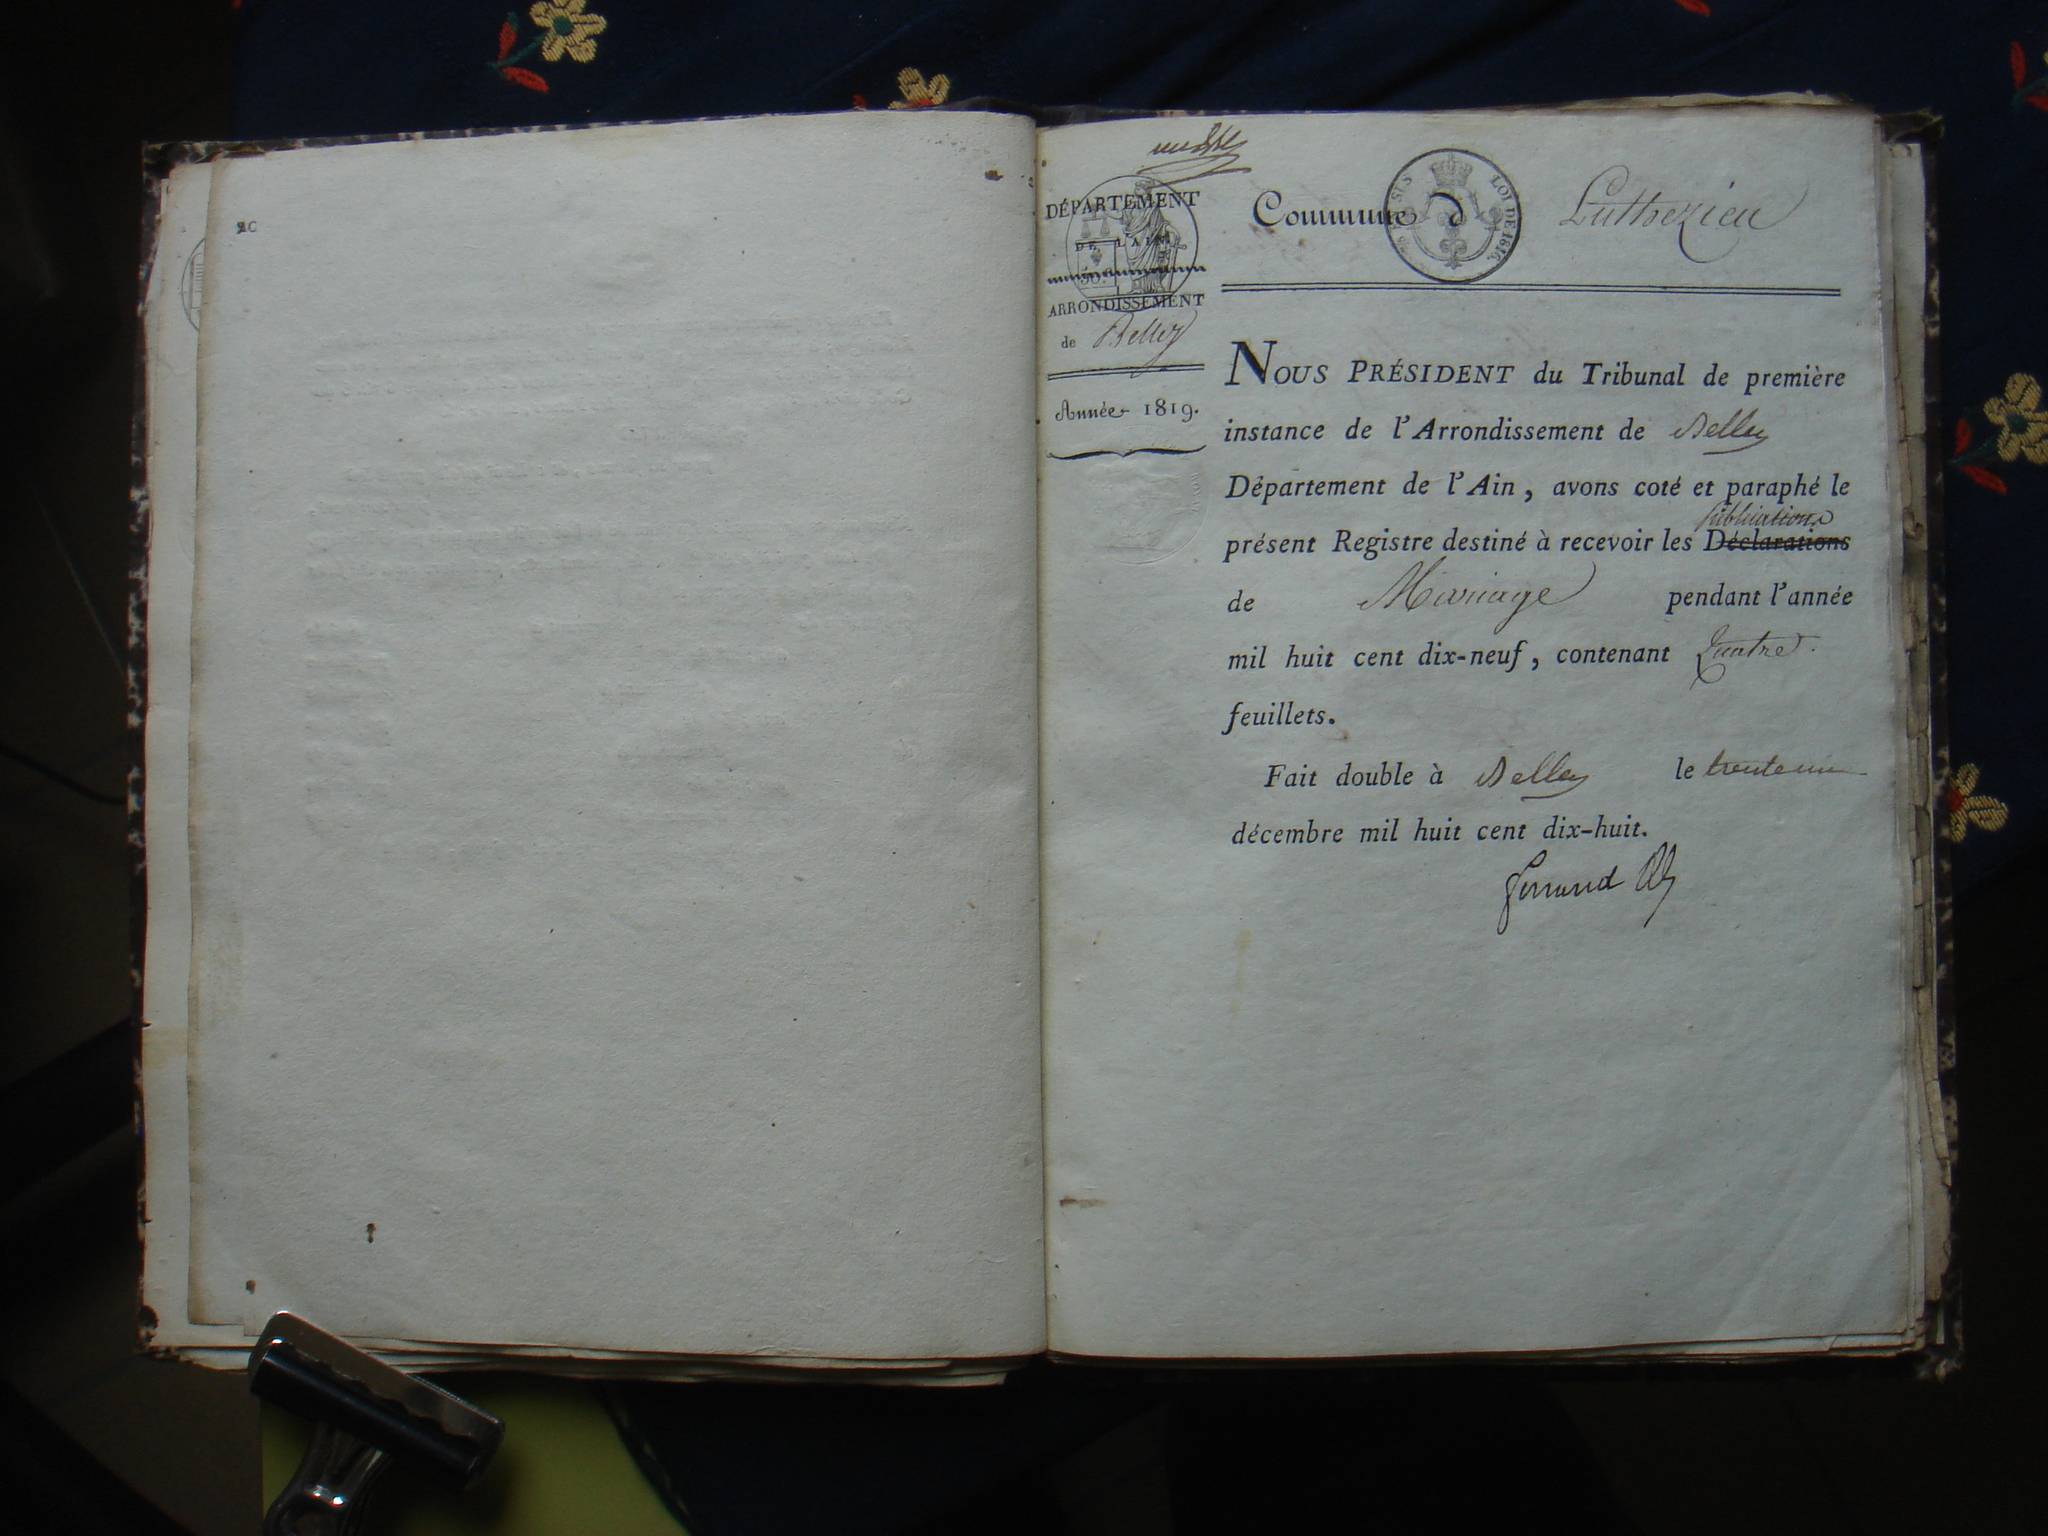 DÉPARTEMENT
DE L'AIN
ARRONDISSEMENT
de Belley
Année 1819.
Commune d Luthezieu
LOI DE 1816.
NOUS PRÉSIDENT du Tribunal de première
instance de l'Arrondissement de Belley
Département de l'Ain, avons coté et paraphé le
publications
présent Registre destiné à recevoir les Déclarations
de Mariage pendant l'année
mil huit cent dix-neuf, contenant Quatre
feuillets.
Fait double à Belley le trente un
décembre mil huit cent dix-huit.